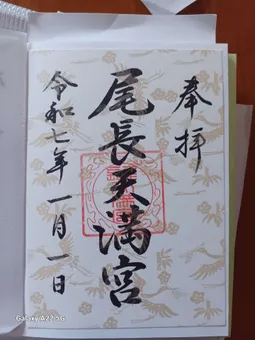 奉拝
尾長天満宮
令和七年 一月一日
Galaxy A22 5G